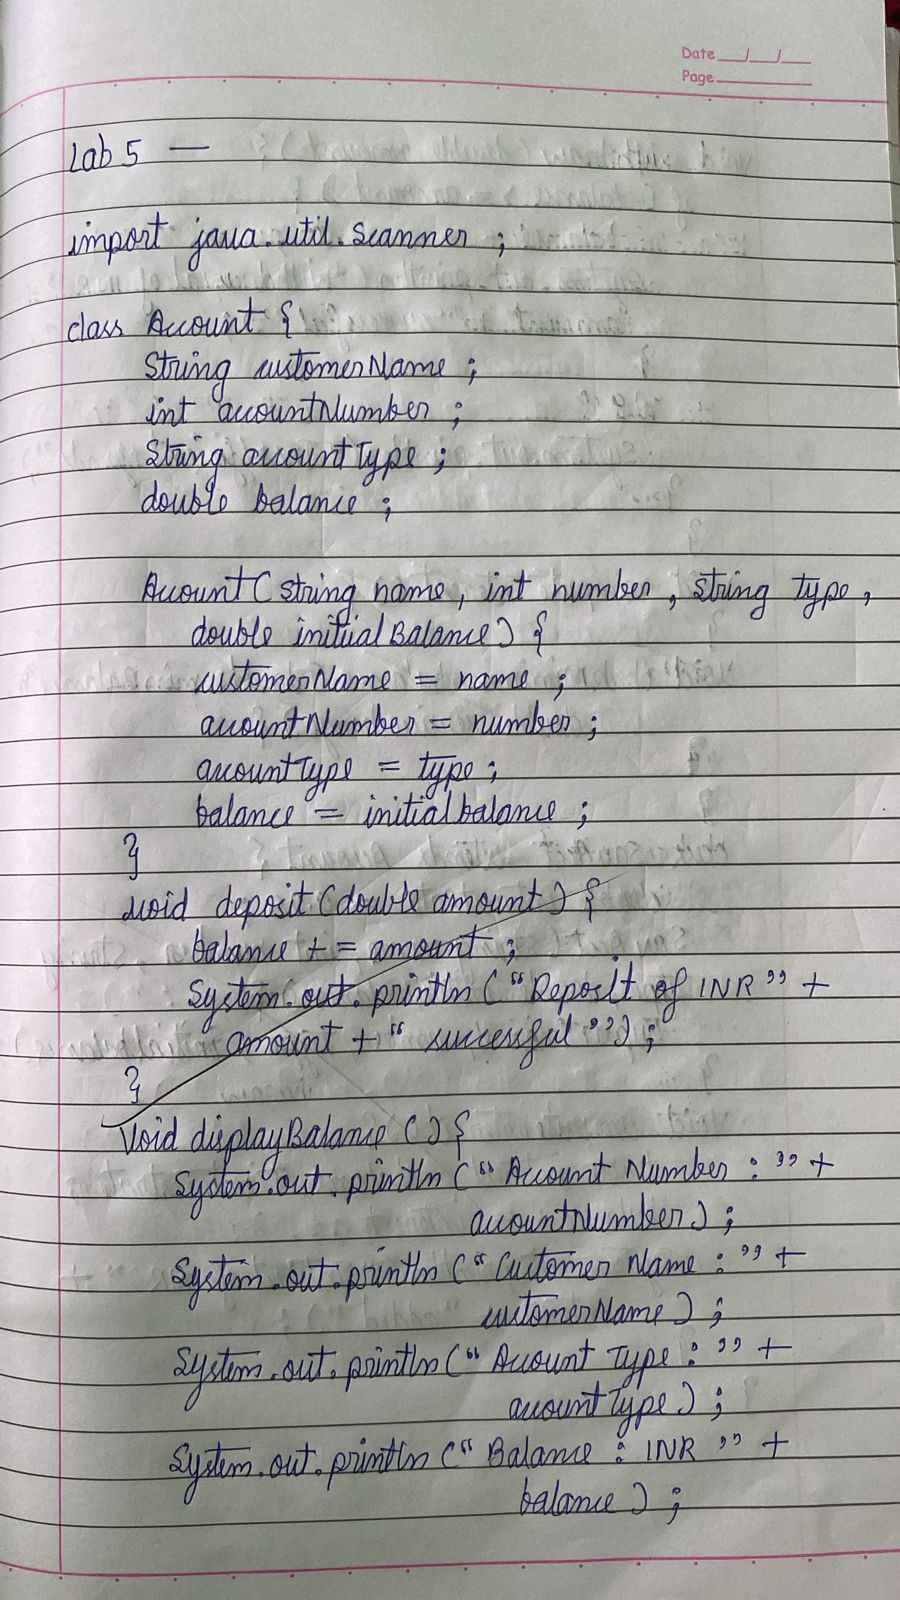 Date __/__/__
Page
Lab 5 —
import java.util.scanner ;
class Account {
String customerName ;
int accountNumber ;
String accountType ;
double balance ;
Account( string name, int number, string type,
double initialBalance) {
customerName = name ;
accountNumber = number ;
accountType = type ;
balance = initialbalance ;
}
void deposit (double amount) {
balance += amount ;
System.out.println ("Deposit of INR" +
amount + "successful") ;
}
Void displayBalance () {
System.out.println ("Account Number :" +
accountNumber) ;
System.out.println ("Customer Name :" +
customerName) ;
System.out.println ("Account Type :" +
accountType) ;
System.out.println ("Balance : INR" +
balance) ;